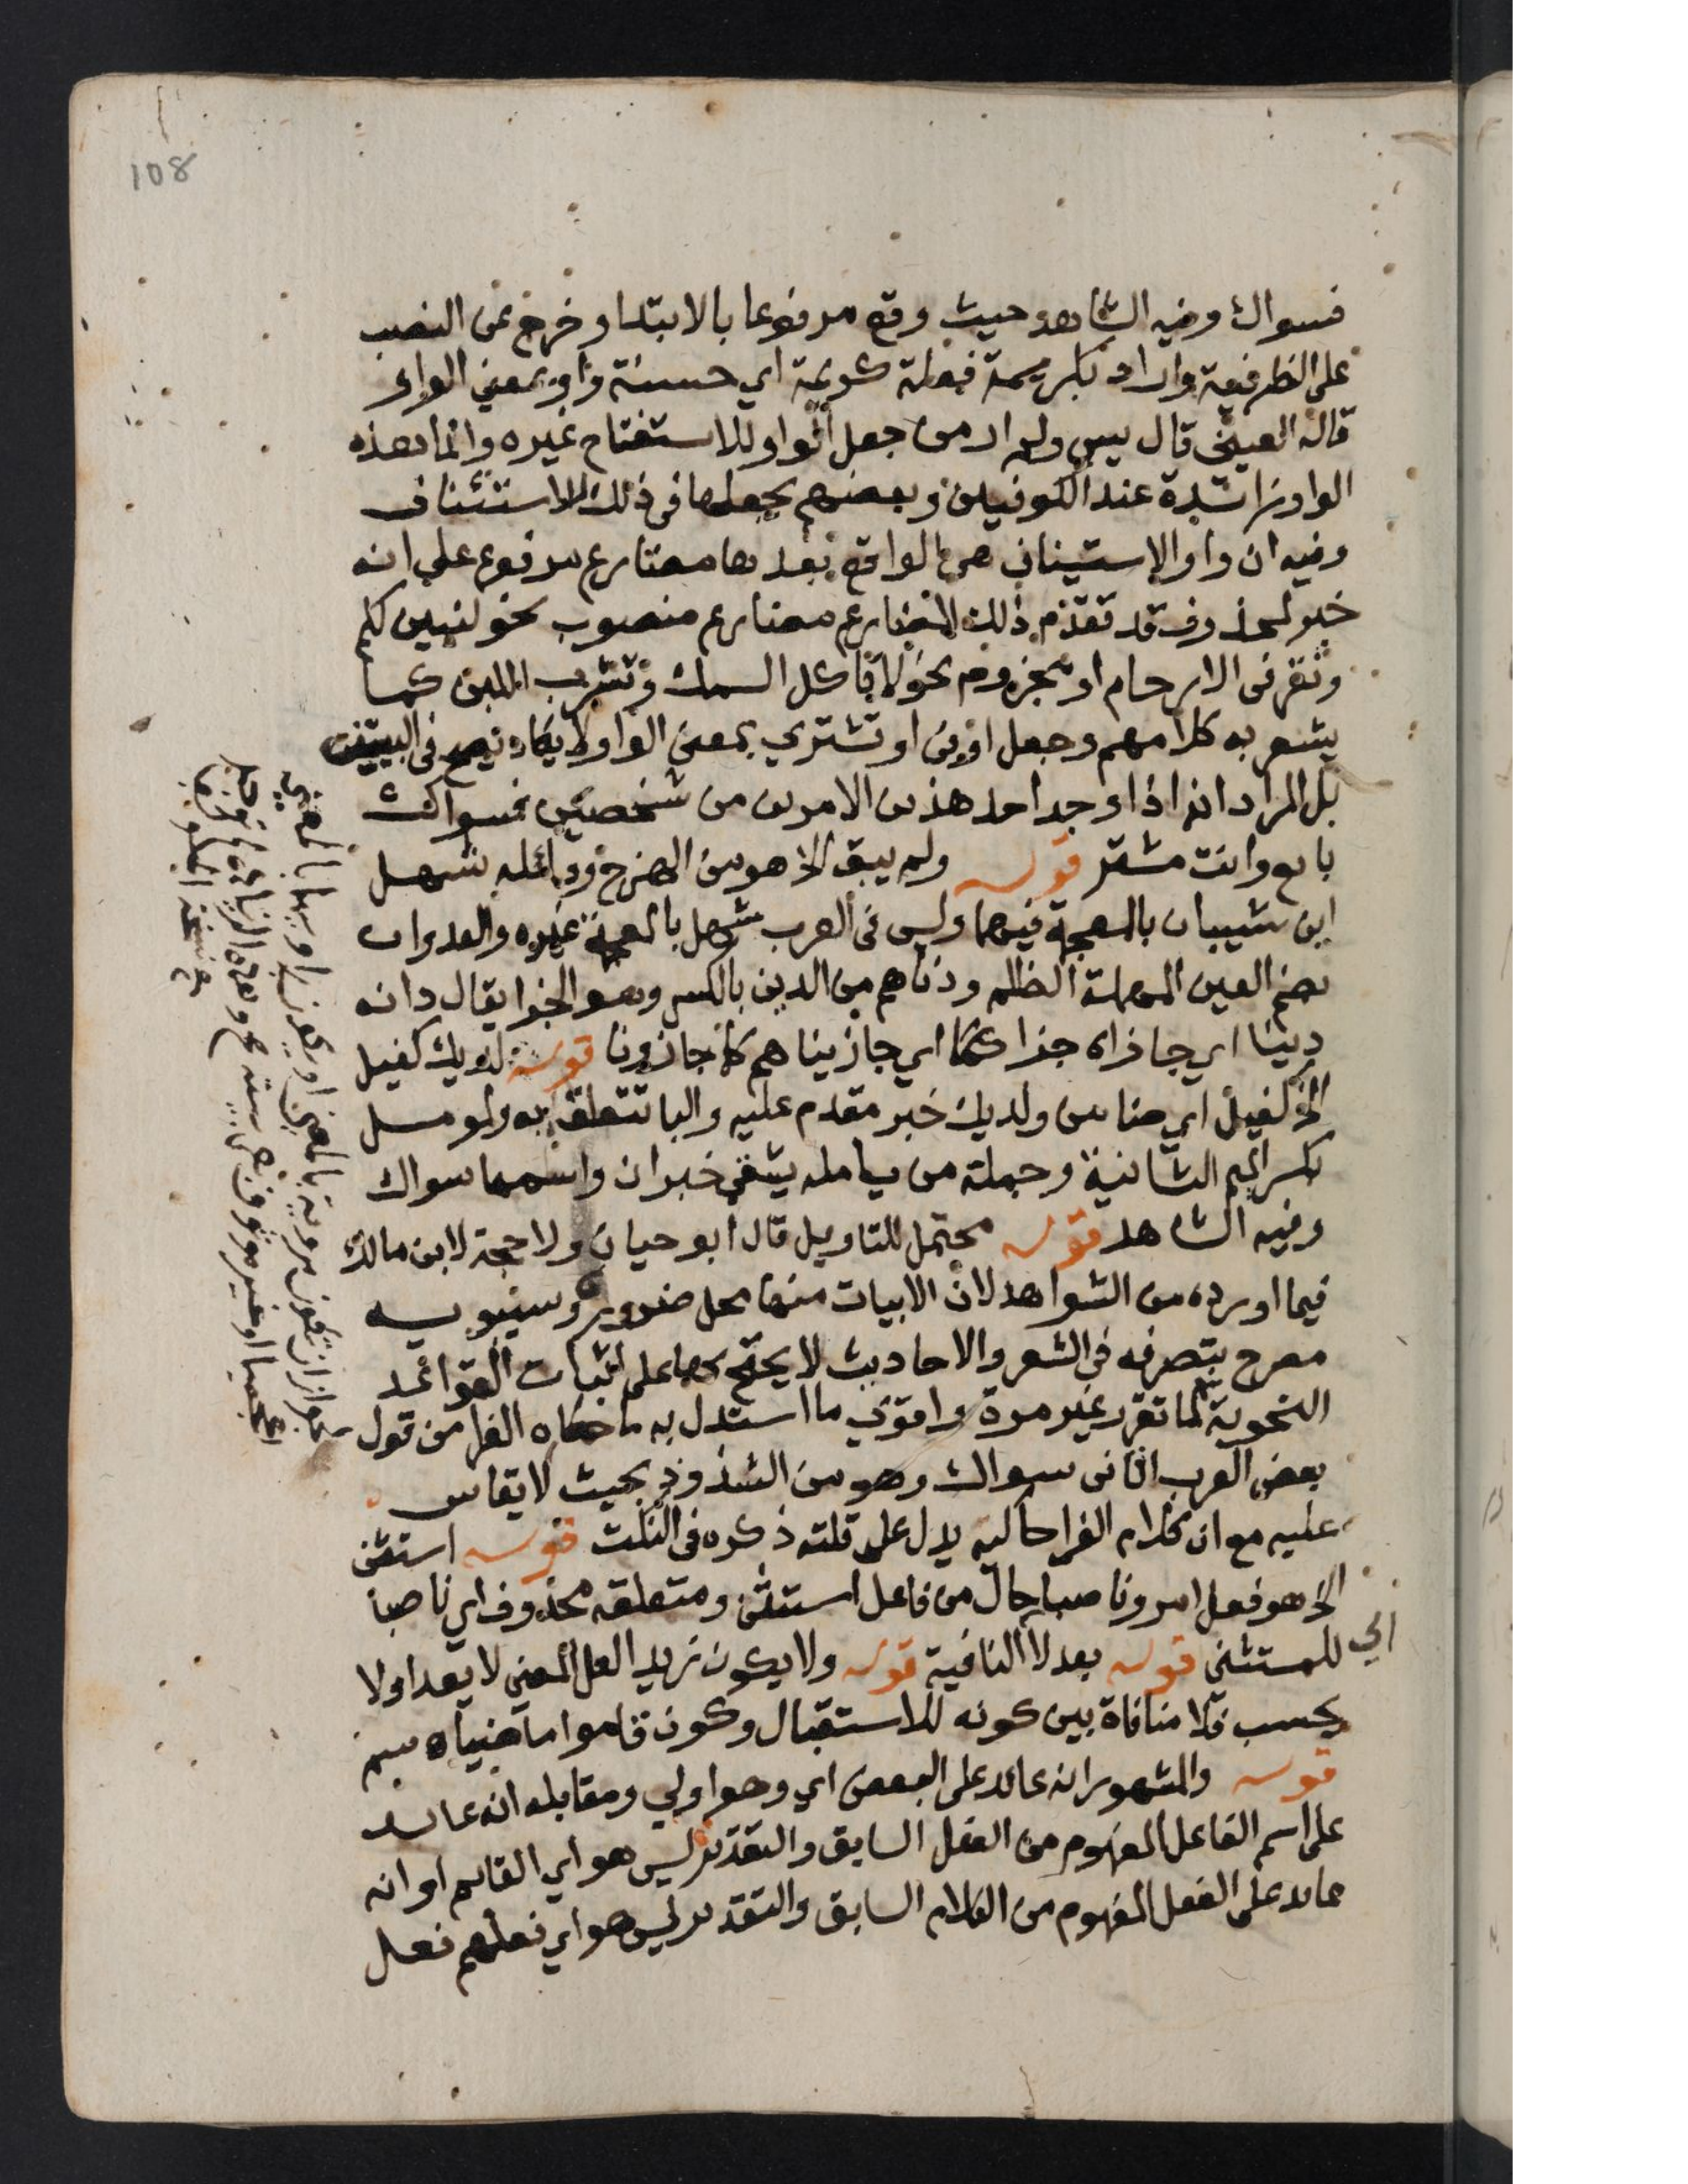 108
فسواك وفيه الشاهد حيث وقع مرفوعا بالابتدا وخرج عن النصب
على الظرفية واراد بكريمة فعلة كريمة اي حسنة واو بمعنى الواو
قاله العيني قال يس ولم ار من جعل الواو للاستفتاح غيره وانما هذه
الواو زائدة عند الكوفيين وبعضهم يجعلها في ذلك للاستئناف
وفيه ان واو الاستيناف هي الواقع بعدها مضارع مرفوع على انه
خبر لمحذوف قد تقدم ذلك المضارع مضارع منصوب نحو لنبين لكم
ونقر في الارحام او مجزوم نحو لا تاكل السمك وتشرب اللبن كما
يشعر به كلامهم وجعل او في او تشتري بمعنى الواو لا يكاد يصح في البيت
بل المراد انه اذا وجد احد هذين الامرين من شخصين فسواك
بايع وانت مشتر قوله ولم يبق الخ هو من الهزج وقائله شهل
ابن شيبان بالمعجمة فيهما وليس في العرب شهل بالمعجمة غيره والعدوان
بضم العين المهملة الظلم ودناهم من الدين بالكسر وهو الجزا يقال دانه
دينا اي جازاه جزا كما اي جازيناهم كما جازونا قوله لديك كفيل
الخ كفيل اي ضامن ولديك خبر مقدم عليه والبا تتعلق به ولمومل
بكسر الميم الثانية وجملة من يامله يشقى خبر ان واسمها سواك
وفيه الشاهد قوله محتمل للتاويل قال ابو حيان ولا حجة لابن مالك
فيما اورده من الشواهد لان الابيات منها محل ضرورة وسيبويه
مصرح بتصرفه في الشعر والاحاديث لا يحتج بها على اثبات القواعد
النحوية لما تقرر غير مرة واقوى ما استدل به ما حكاه الفرا من قول
بعض العرب اتاني سواك وهو من الشذوذ بحيث لا يقاس
عليه مع ان كلام الفرا حاكيه يدل على قلته ذكره في النكت قوله استثنى
الخ هو فعل امر وناصبا حال من فاعل استثنى ومتعلقه محذوف اي ناصبا
اي للمستثنى قوله بعد لا النافية قوله ولا يكون زيدا لعل المعنى لا يعد او لا
يحسب فلا منافاة بين كونه للاستقبال وكون قاموا ماضيا اه سم
قوله والمشهور انه عائد على البعض اي وهو اولى ومقابله انه عائد
على اسم الفاعل المفهوم من الفعل السابق والتقدير ليس هو اي القائم او انه
عائد على الفعل المفهوم من الكلام السابق والتقدير ليس هو اي فعلهم فعل